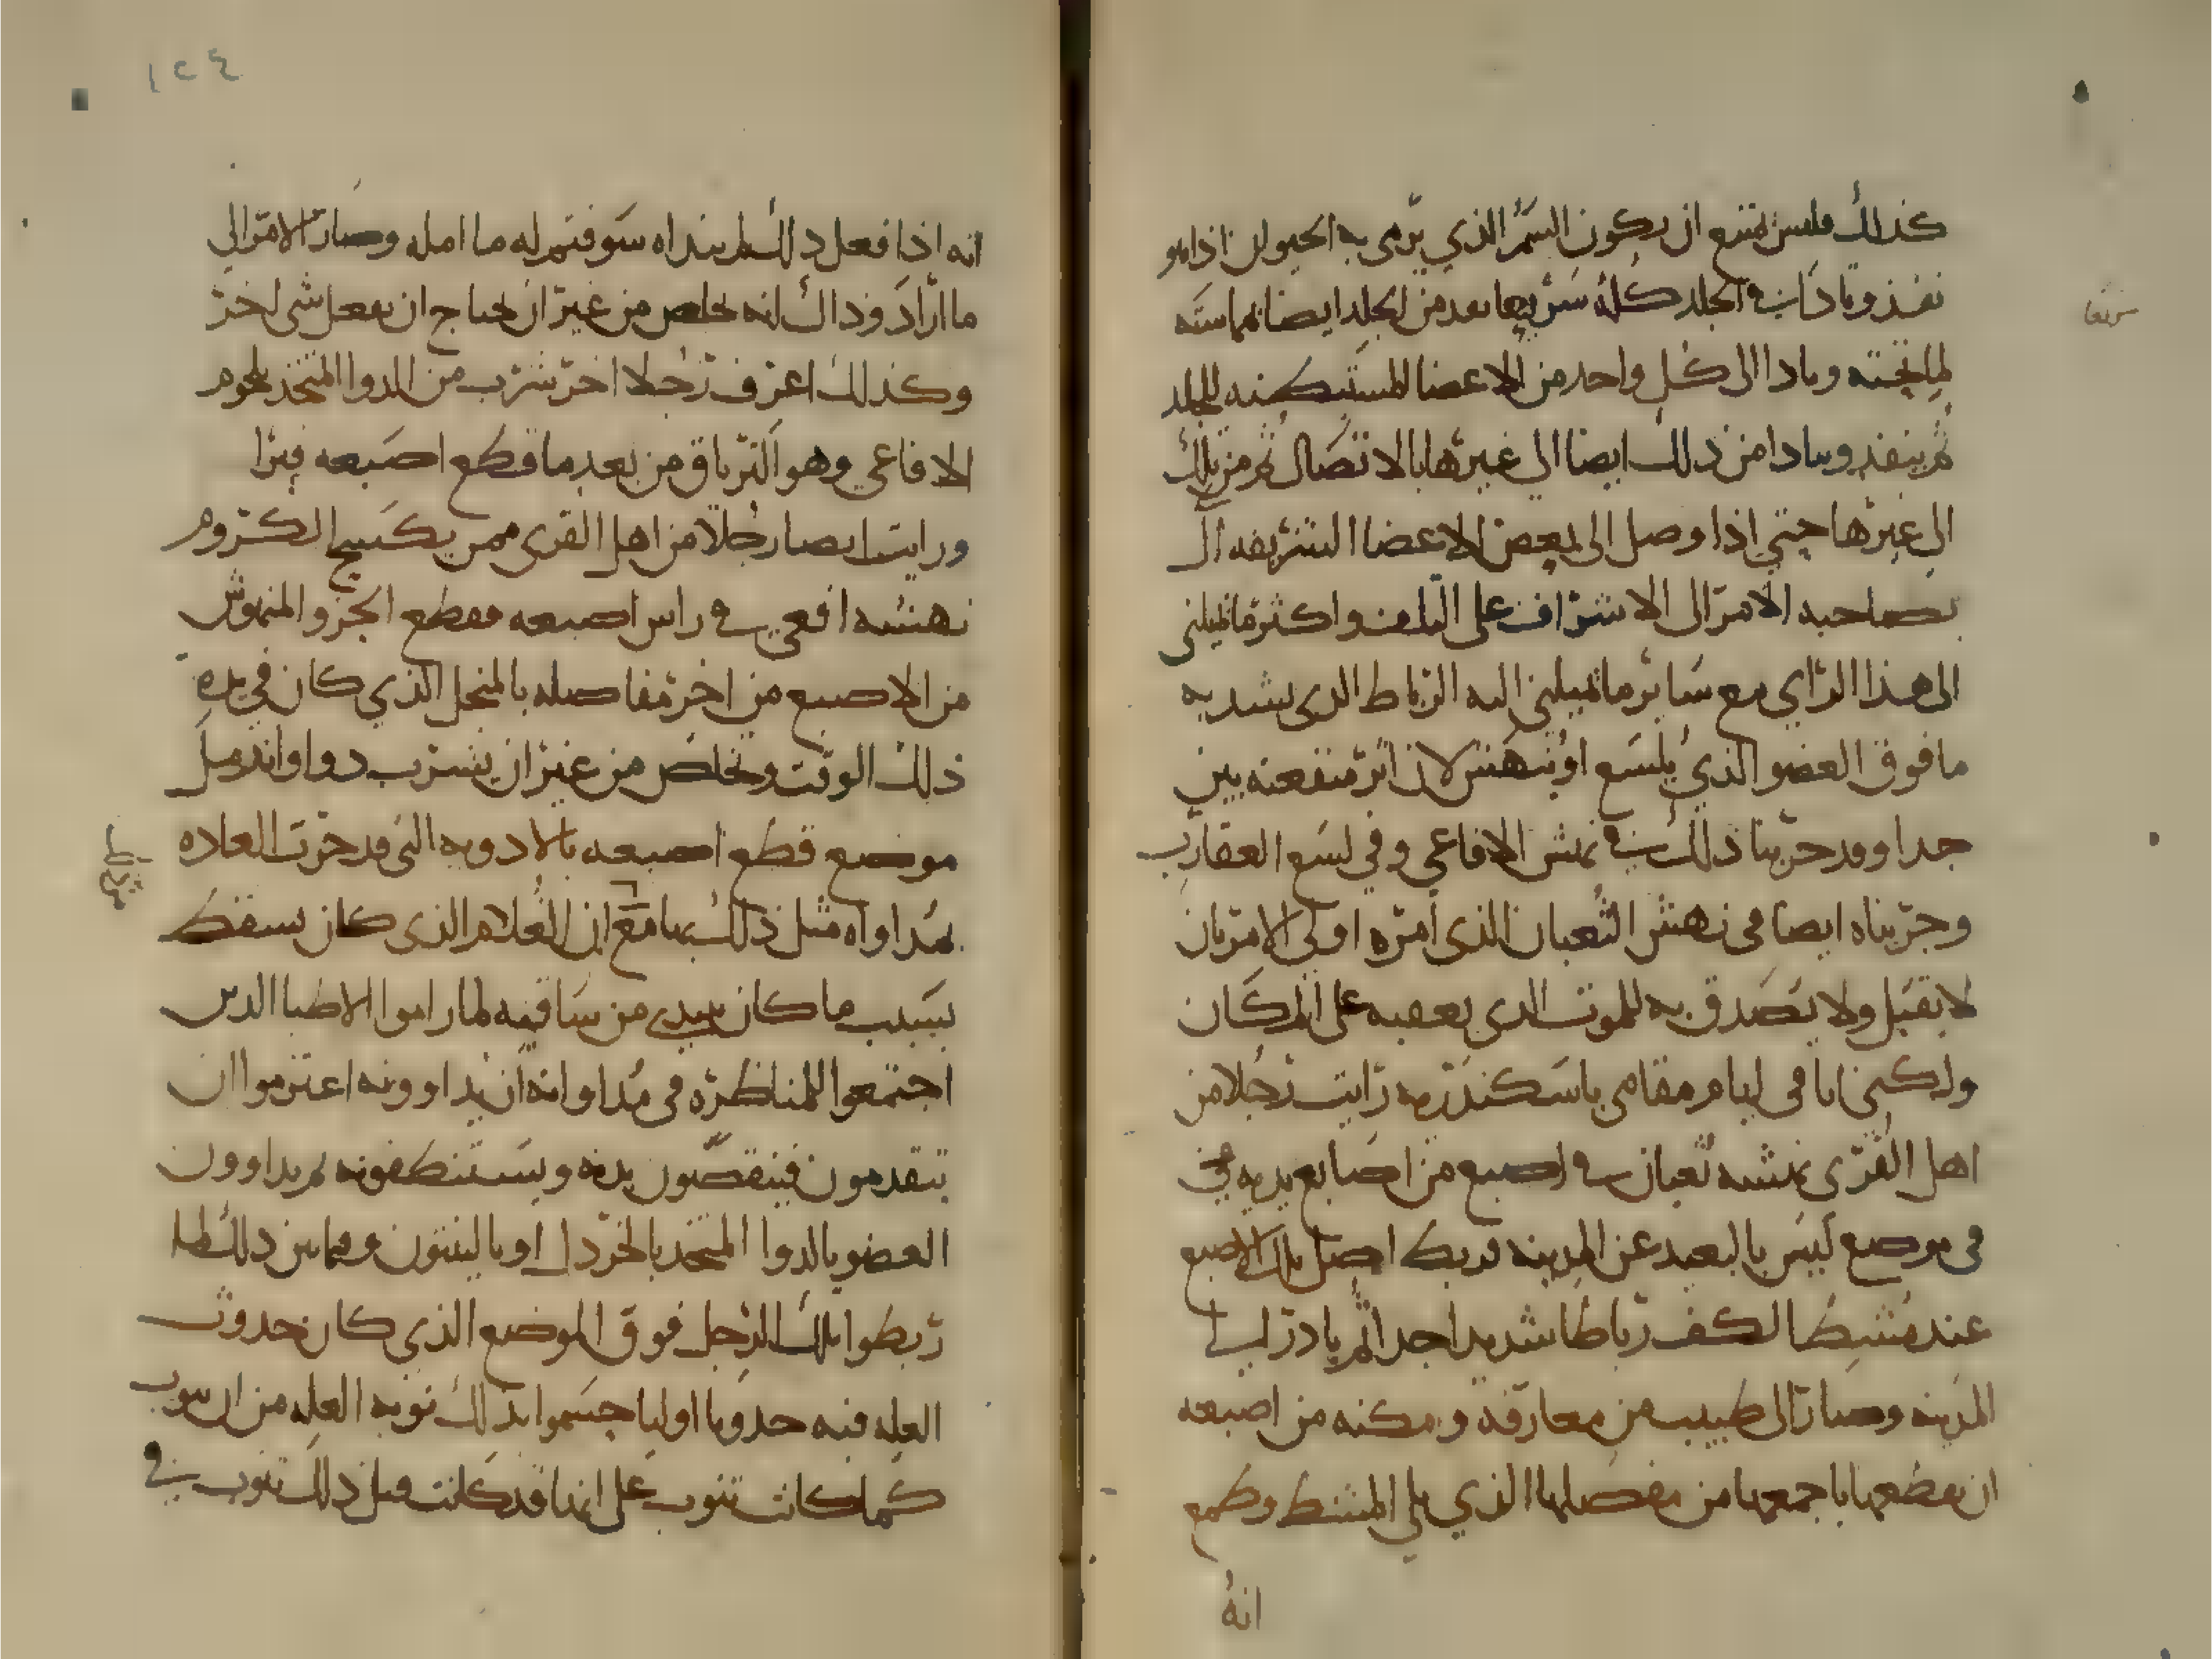 كذلك فليس يمتنع ان يكون السم الذي يرمى به الحيوان اذا هو
نفذ وتادا في الجلد كله سريعا نفذ من الجلد ايضا بمماسته
لما تحته وتادا الى كل واحد من الاعضا المستبطنه للجلد
ثم ينفذ ويتادا من ذلك ايضا الى غيرها بالاتصال ثم من تلك
الى غيرها حتي اذا وصل الى بعض الاعضا الشريفه ال
بصاحبه الامر الى الاشراف على التلف واكثر ما تميلني
الى هذا الراي مع سائر ما تميلني اليه الرباط الذى يشد به
ما فوق العضو الذي يلسع او ينهش لان اثر منفعته بين
جدا وقد جربنا ذلك في نهش الافاعي وفي لسع العقارب
وجربناه ايضا في نهش الثعبان الذى امره اولى الامر بان
لا يقبل ولا يصدق به للموت الذى يعقبه على المكان
ولكني انا في ايام مقامي باسكندريه رايت رجلا من
اهل القرى نهشه ثعبان في اصبع من اصابع يديه
في موضع ليس بالبعيد عن المدينه فربط اصل تلك الاصبع
عند مشط الكف رباطا شديدا جدا ثم بادر الى
المدينه وصار الى طبيب من معارفه ومكنه من اصبعه
ان يقطعها باجمعها من مفصلها الذي يلي المشط وطمع
انهُ
سريعا
انه اذا فعل ذلك لم ينداه سو فتم له ما امله وصار الامر الى
ما اراد وذاك انه تخلص من غير ان يحتاج ان يفعل شي اخر
وكذلك اعرف رجلا اخر شرب من الدوا المتخذ بلحوم
الافاعي وهو الترياق من بعد ما قطع اصبعه فبرا
ورايت ايضا رجلا من اهل القرى ممن يكسح الكروم
نهشه افعي في راس اصبعه فقطع الجزو المنهوش
من الاصبع من اخر مفاصله بالمنجل الذي كان في يده
ذلك الوقت وتخلص من غير ان يشرب دوا واندمل
موضع قطع اصبعه بالادويه التى قد جرت العاده
بمداواه مثل ذلك بها مع ان الغلام الذى كان يسقط
بسبب ما كان يبتدي من ساقيه لما راموا الاطبا الذين
اجتمعوا للمناظره في مداواته ان يداوونه اعتزموا ان
يتقدمون فينقصون بدنه ويستنظفونه ثم يداوون
العضو بالدوا المتخذ بالخردل او بالينتون وفيما بين ذلك لما
ربطوا تلك الرجل فوق الموضع الذي كان حدوث
العله فيه حدوثا اوليا حسموا بذلك نوبه العله من ان تنوب
كما كانت تنوب على انها قد كانت قبل ذلك تنوب في